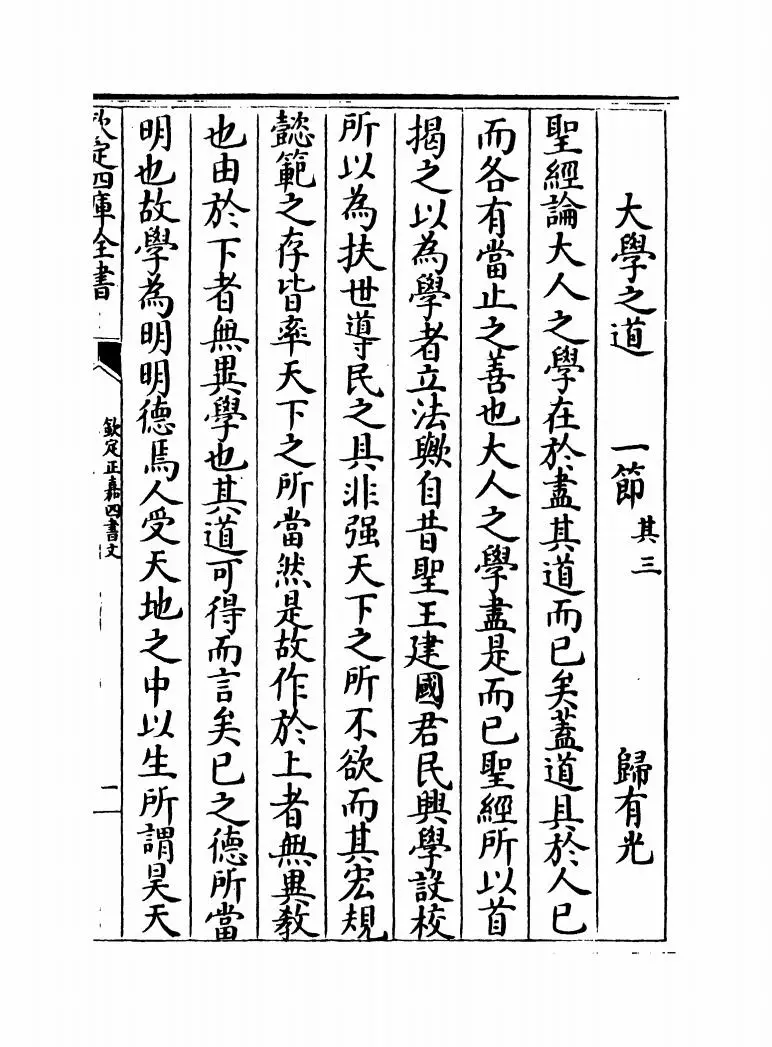 大學之道 一節 其三 歸有光
聖經論大人之學在於盡其道而已矣蓋道具於人已
而各有當止之善也大人之學盡是而已聖經所以首
揭之以為學者立法歟自昔聖王建國君民興學設校
所以為扶世導民之具非强天下之所不欲而其宏規
懿範之存皆率天下之所當然是故作於上者無異教
也由於下者無異學也其道可得而言矣已之德所當
明也故學為明明德焉人受天地之中以生所謂昊天
欽定四庫全書
欽定正嘉四書文
二